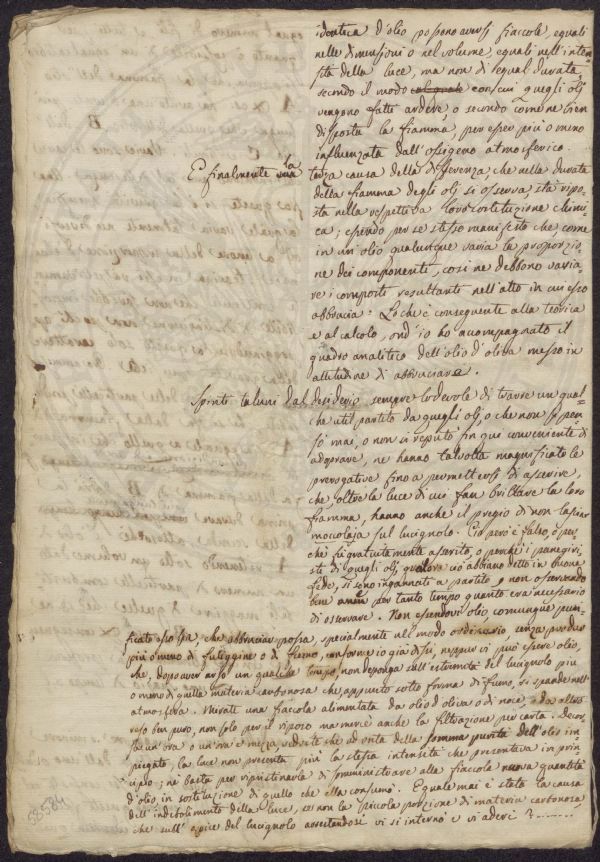 identica d'olio possono aversi fiaccole, eguali
nelle dimensioni o nel volume, eguali nell'inten=
sità della luce, ma non di egual durata,
secondo il modo con cui quegli olj
vengono fatti ardere, o secondo come ne vien
disposta la fiamma, per esser più o meno
influenzata dall'ossigeno atmosferico.
E finalmente la terza causa della differenza, che nella durata
della fiamma degli olj si osserva, sta ripo=
sta nella rispettiva loro costituzione chimi=
ca; essendo per se stesso manifesto che, come
in un olio qualunque varia la proporzio=
ne dei componenti, così ne debbono varia=
re i composti resultanti nell'atto in cui esso
abbrucia: Lo che è conseguente alla teorica
e al calcolo, ond'io ho accompagnato il
quadro analitico dell'olio d'oliva messo in
attitudine di abbruciare.
Spinti taluni dal desiderio sempre lodevole di trarre un qual=
che util partito da quegli olj, o che non si pen=
sò mai, o non si reputò fin qui conveniente di
adoprare, ne hanno talvolta magnificate le
prerogative fino a permettersi di asserire,
che, oltre la luce di cui fan brillare la loro
fiamma, hanno anche il pregio di non lasciar
moccolaja sul lucignolo. Ciò però è falso, o per=
chè fu gratuitamente asserito, o perchè i panegiri=
sti di quegli olj, qualora ciò abbiano detto in buona
fede, si sono ingannati a partito, e non osservando
bene per tanto tempo quanto era necessario
di osservare. Non essendovi olio comunque puri=
ficato esso sia, che abbruciar possa, specialmente nel modo ordinario, senza produr
più o meno di fuliggine o di fumo, conforme io già dissi, neppur vi può essere olio,
che, dopo aver arso un qualche tempo, non deponga sull'estremità del lucignolo più
o meno di quella materia carbonosa che appunto sotto forma di fumo, si spande nell'
atmosfera. Mirate una fiaccola alimentata da olio d'oliva o di noce, o da altro
reso ben puro, non solo per il riposo ma mercè anche la filtrazione per carta. Decor=
sa un'ora o un'ora e mezza, vedrete che ad onta della somma purità dell'olio im=
piegato, la luce non presenta più la stessa intensità che presentava in prin=
cipio; nè basta per ripristinarla di somministrare alla fiaccola nuova quantità
d'olio in sostituzione di quello che alla consumò. E quale mai è stata la causa
dell'indebolimento della luce, se non la piccola porzione di materia carbonosa,
che sull'apice del lucignolo assestandosi vi si internò e vi aderì?